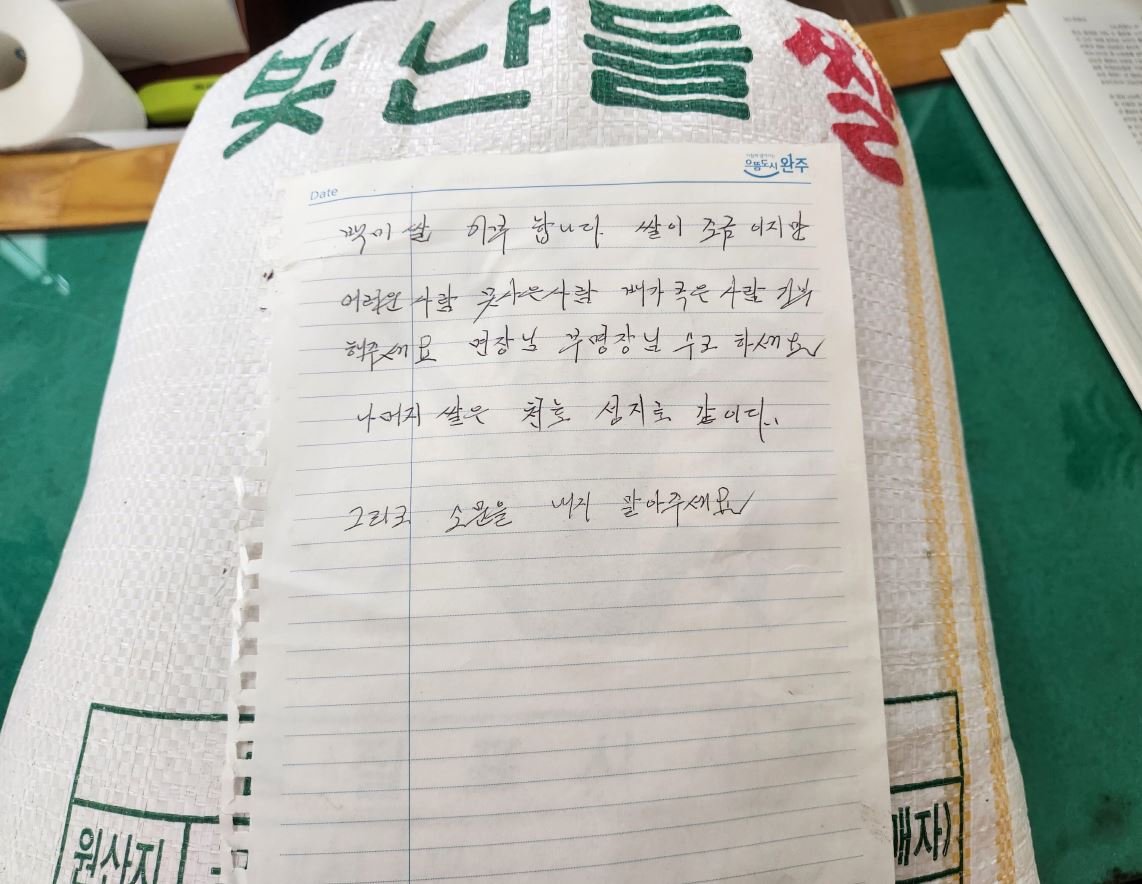 빛난들 쌀
Date
으뜸도시 완주
백미 쌀 하루 합니다. 쌀이 조금 이지만
어려운 사람 못사는 사람 배가 곡은 사람 기부
해주세요 면장님 부명장님 수고 하세요
나머지 쌀은 섬지로 갑이다..
그리고 소문을 내지 말아주세요
원산지
매자)